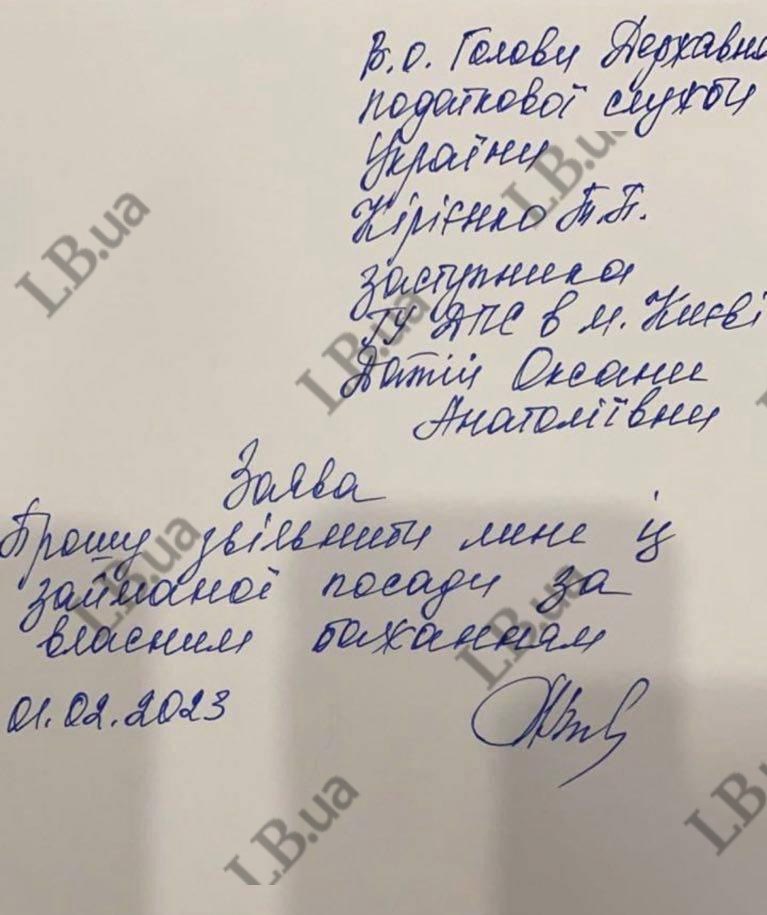 В.о. Голови Державно
податкової служби
України
Кірієнко Т.П.
заступника
ГУ ДПС в м. Києві
Датій Оксани
Анатоліївни
Заява
Прошу звільнити мене із
займаної посади за
власним бажанням
01.02.2023
LB.ua
LB.ua
LB.ua
LB.ua
LB.ua
LB.ua
LB.ua